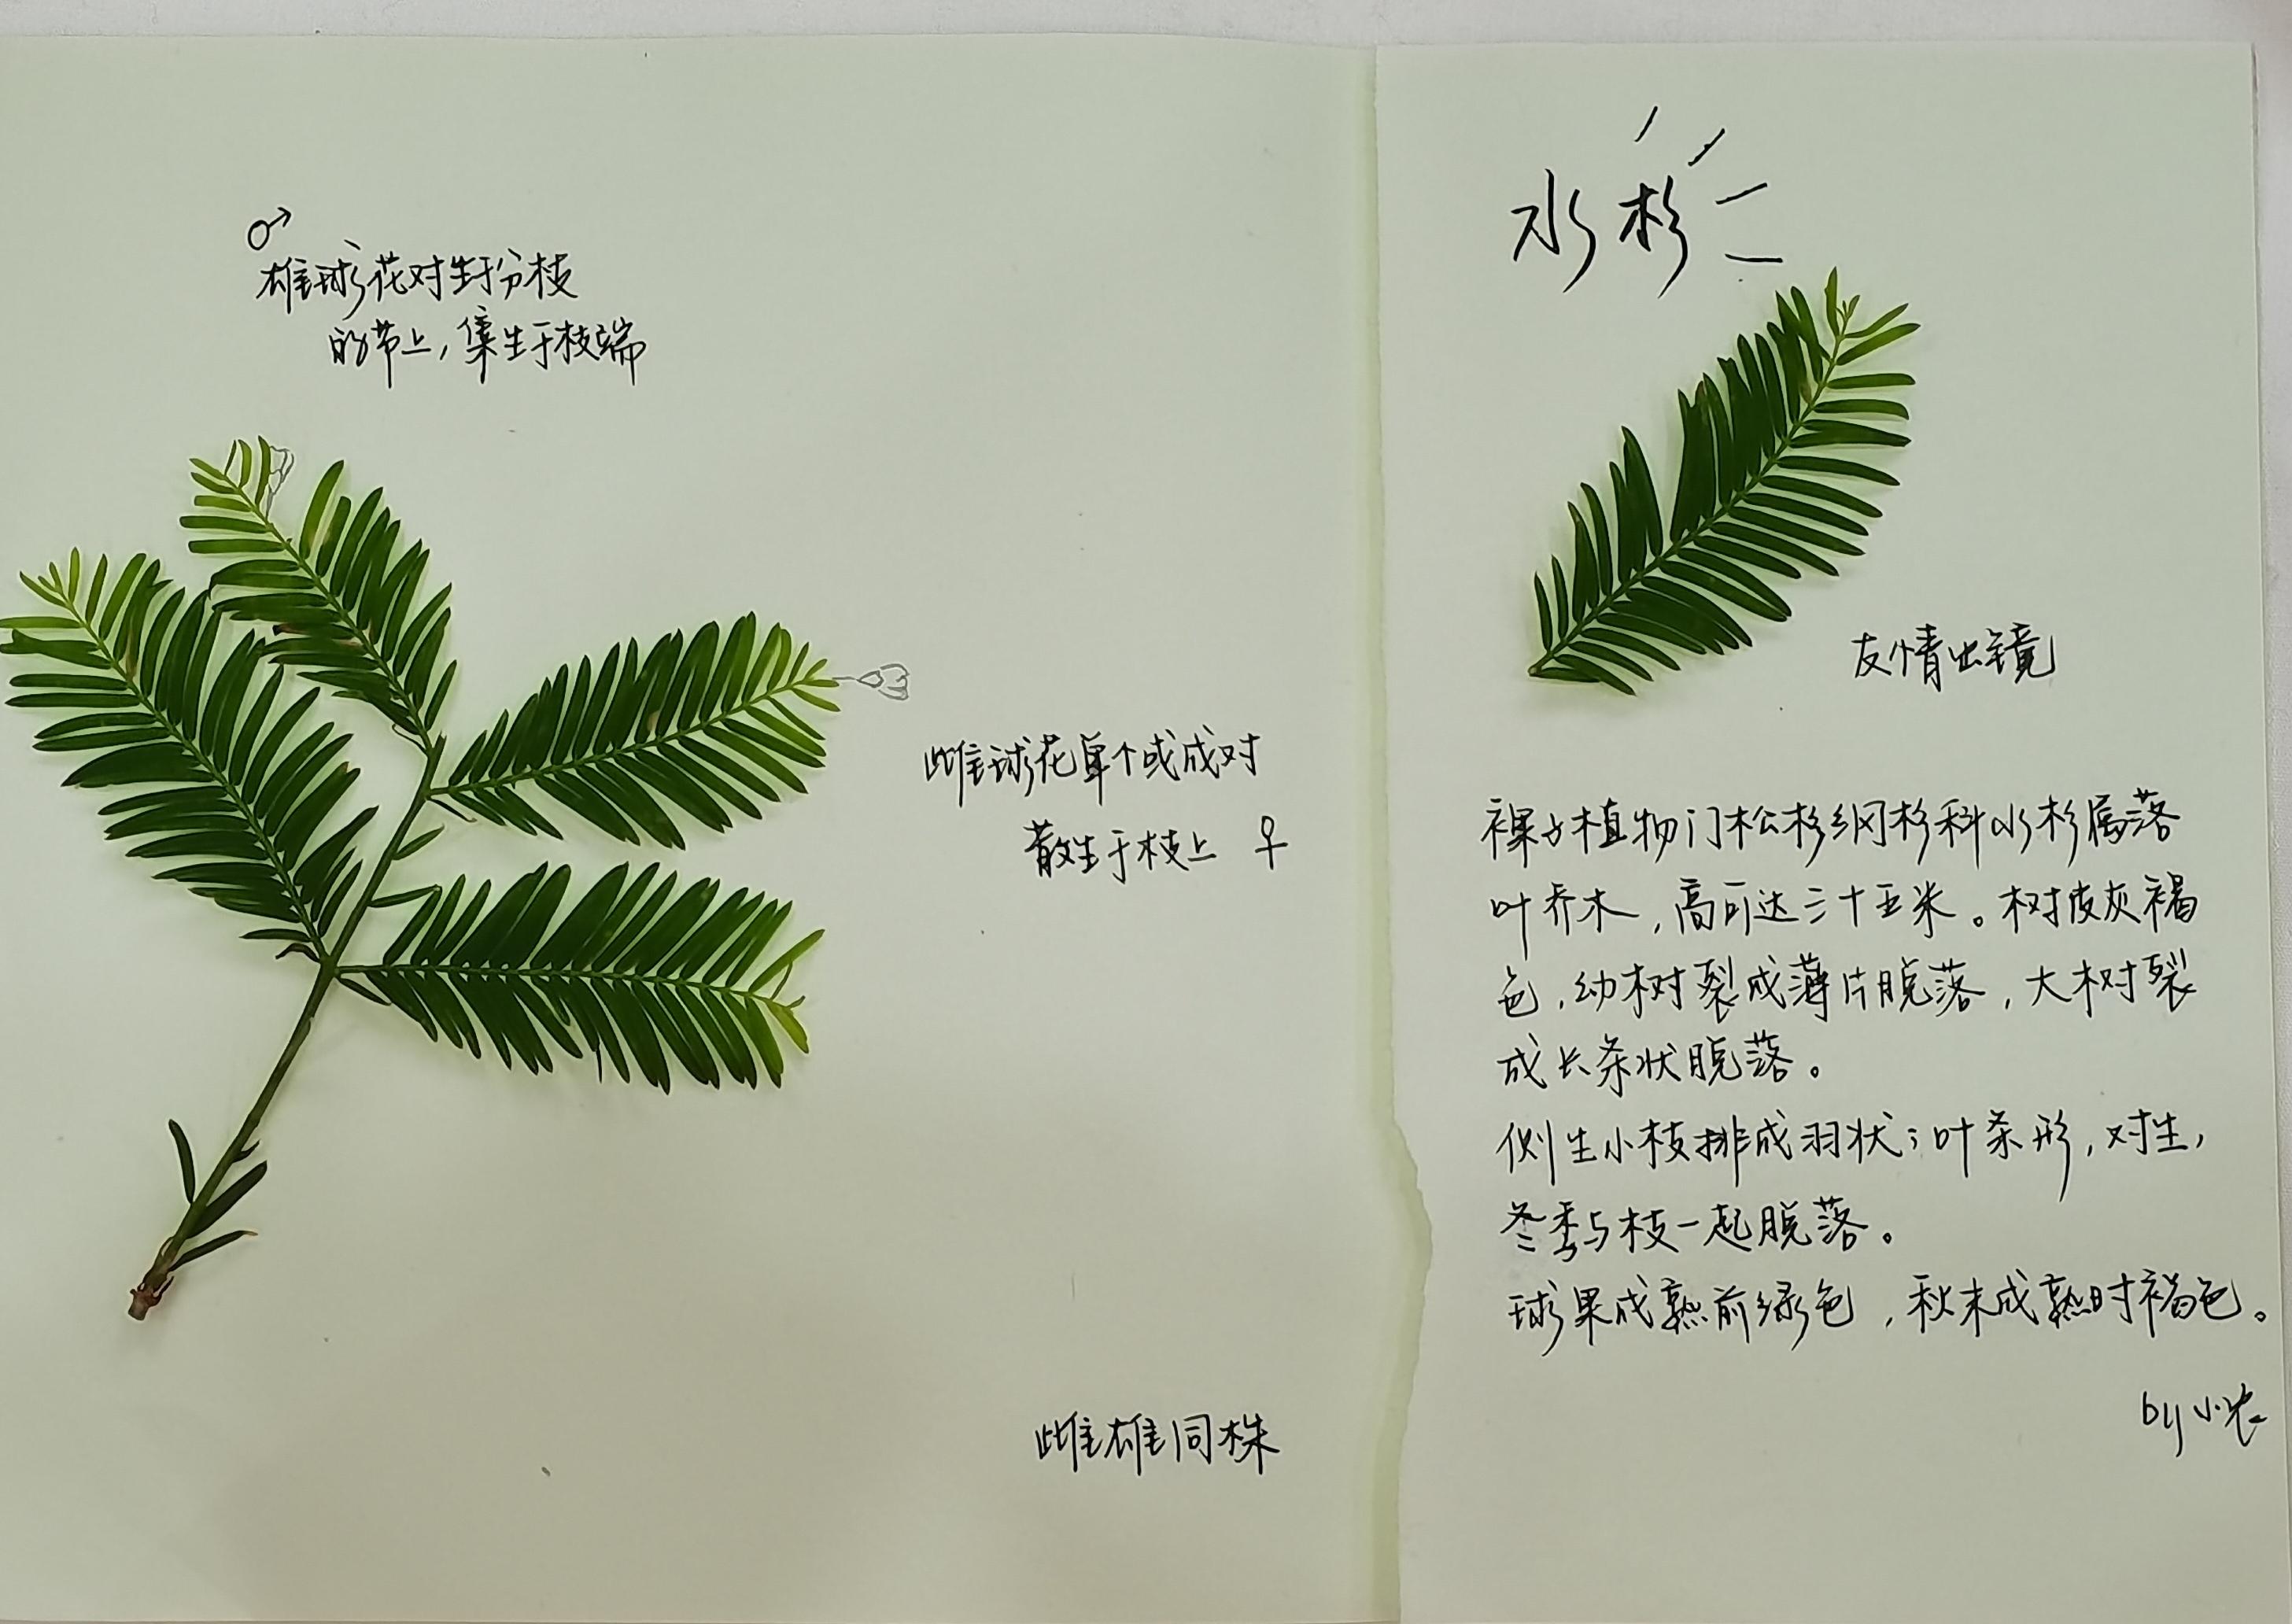 ♂
雄球花对生于分枝
的节上,集生于枝端
雌球花单个或成对
散生于枝上 ♀
雌雄同株
水杉
友情出镜
裸子植物门松杉纲杉科水杉属落
叶乔木,高可达三十五米。树皮灰褐
色,幼树裂成薄片脱落,大树裂
成长条状脱落。
侧生小枝排成羽状;叶条形,对生,
冬季与枝一起脱落。
球果成熟前绿色,秋末成熟时褐色。
by小农